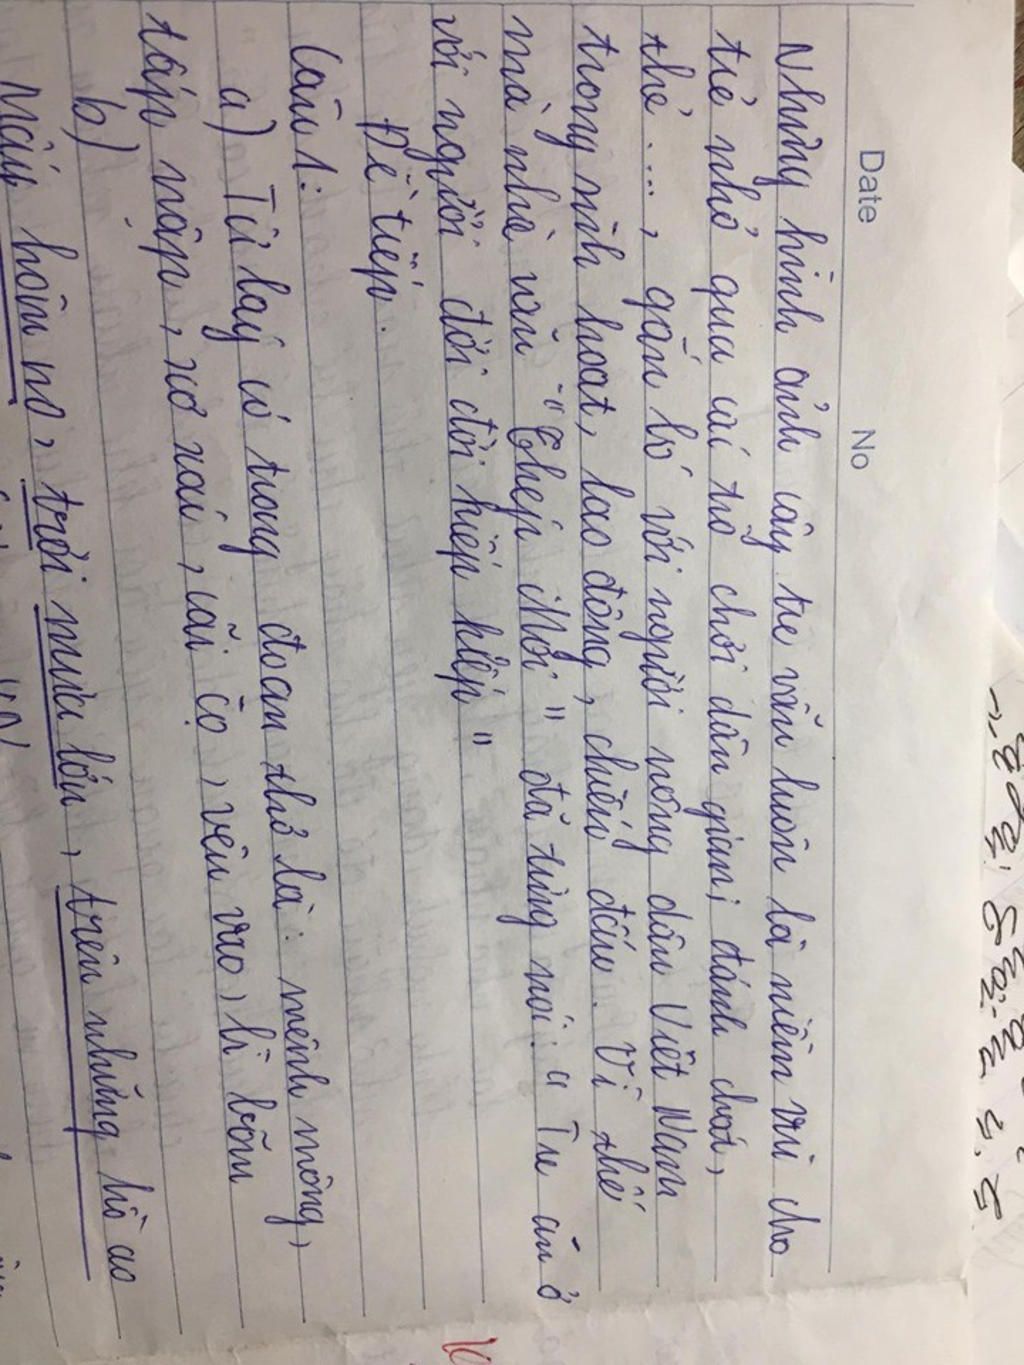 Date No
Những hình ảnh cây tre vẫn luôn là niềm vui cho
trẻ nhỏ qua cái trò chơi dân gian; đánh chắt,
thẻ..., gắn bó với người nông dân Việt Nam
trong sinh hoạt, lao động, chiến đấu. Vì thế
mà nhà văn "Thép Mới" đã từng nói: "Tre ăn ở
với người đời đời kiếp kiếp"
Đề tiếp.
Câu 1:
a) Từ láy có trong đoạn thơ là: mênh mông,
tấp nập, xơ xác, cãi cọ, vêu vao, bì bõm
b)
Mấy hôm nọ, trời mưa lớn, trên những hồ ao